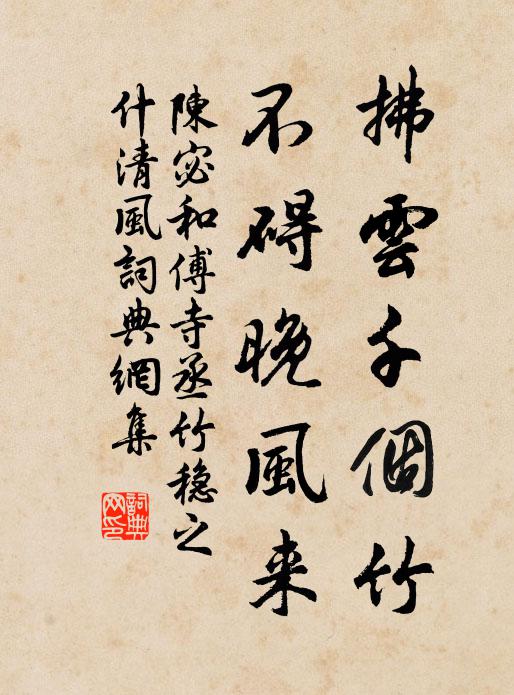 拂雲千個竹
不碍晚風来
陳宓和傅寺丞竹穏之
什清風詞典網集
詞典
网印